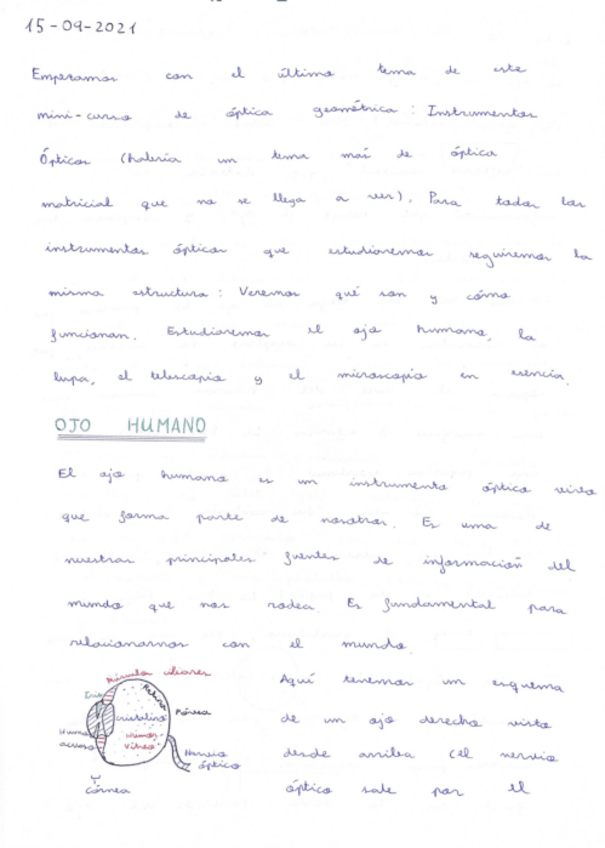 15-09-2021
Empezamos con el último tema de este
mini-curso de óptica geométrica: Instrumentos
Ópticos (habría un tema más de óptica
matricial que no se llega a ver). Para todos los
instrumentos ópticos que estudiaremos seguiremos la
misma estructura: Veremos qué son y cómo
funcionan. Estudiaremos el ojo humano, la
lupa, el telescopio y el microscopio en esencia.
OJO HUMANO
El ojo humano es un instrumento óptico vivo
que forma parte de nosotros. Es una de
nuestras principales fuentes de información del
mundo que nos rodea. Es fundamental para
relacionarnos con el mundo.
Músculos ciliares
Iris
Retina
Cristalino
Fóvea
Humor
acuoso
Humor
vítreo
Nervio
óptico
Córnea
Aquí tenemos un esquema
de un ojo derecho visto
desde arriba (el nervio
óptico sale por el